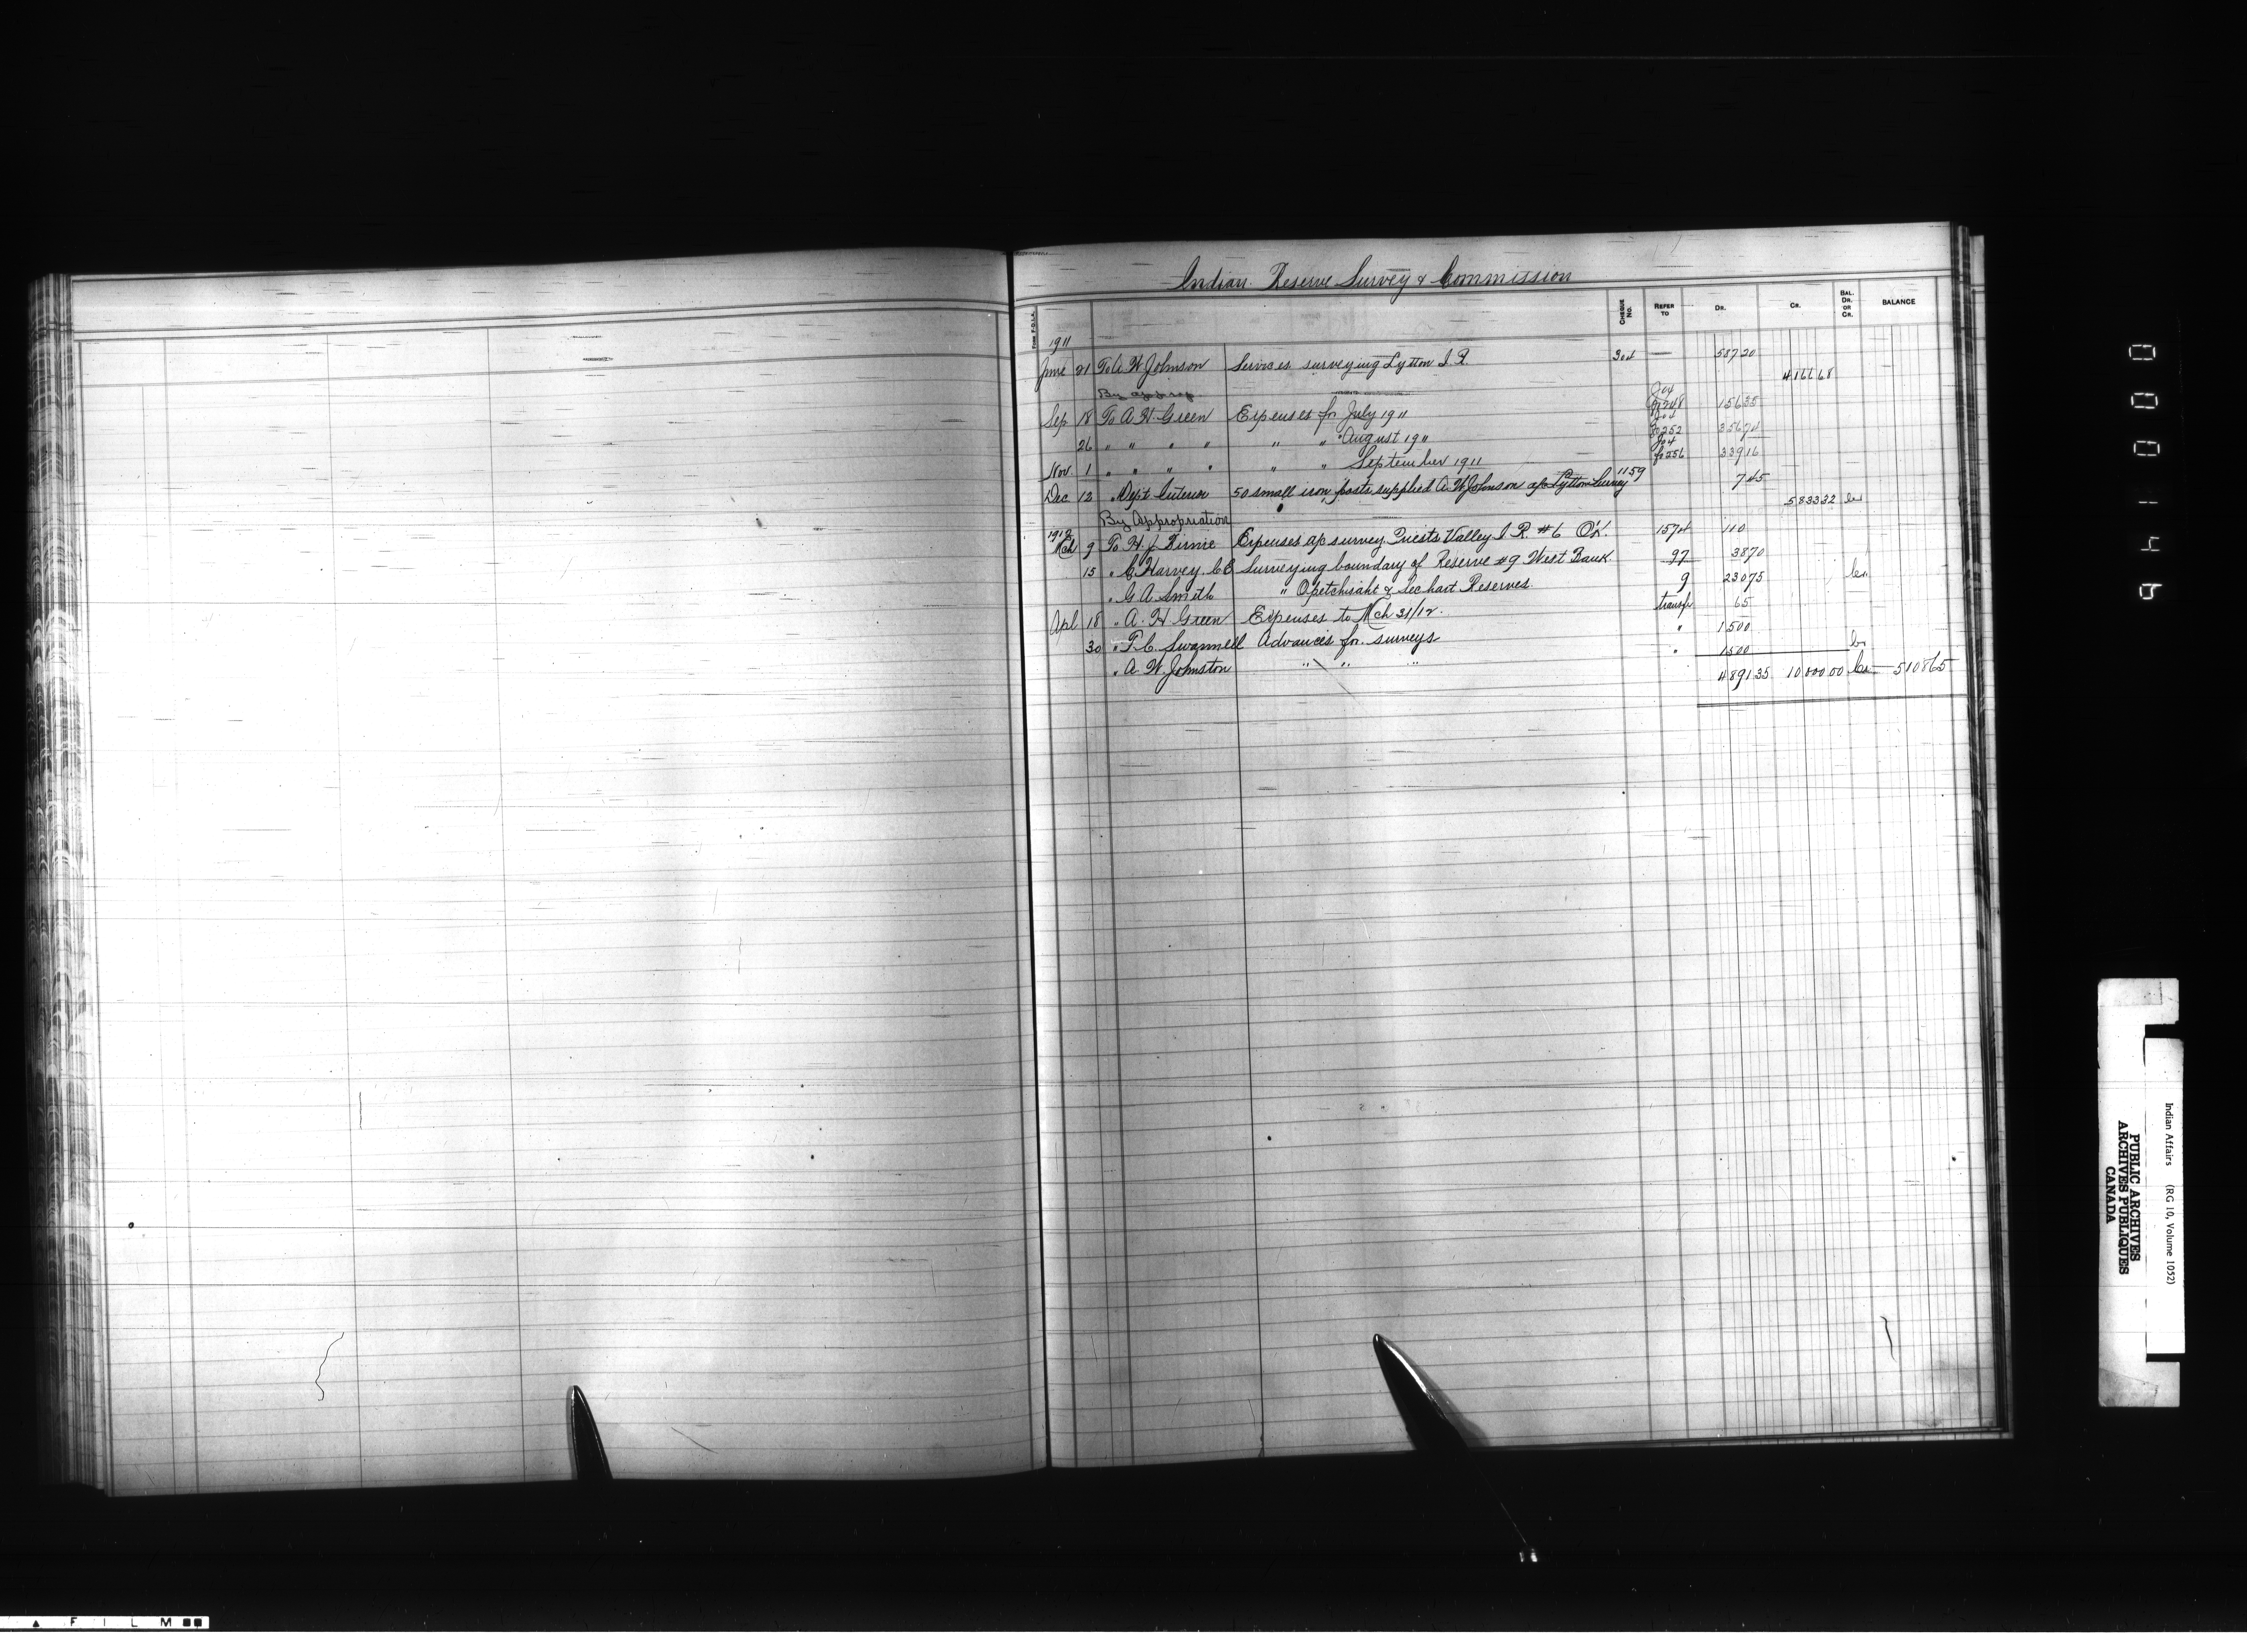 Indian Reserve Survey & Commission
FORM F.O.I.A. CHEQUE No. REFER TO DR. CR. BAL. DR. OR CR. BALANCE
1911
June 21 To A W Johnson Services surveying Lytton I. R. 304 — 587 20
By approp 4166 68
Sep 18 To A. H. Green Expenses for July 1911 Jo4 fo248 156 35
26 " " " " " " August 1911 Jo4 fo252 356 74
Nov. 1 " " " " " " September 1911 Jo4 fo256 339 16
Dec 12 " Dept Interior 50 small iron posts supplied A. W Johnson a/c Lytton Survey 1159 7 45
By Appropriation 5833 32
1912
Mch 9 To H. J. Expenses a/c survey Priests Valley I. R. #6 Ok. 1574 110
15 " C Harvey, C E Surveying boundary of Reserve #9 West Bank 97 38 70
" G A Smith " Opetchisaht & Sechart Reserves. 9 230 75
Apl 18 " A. H Green Expenses to Mch 31/12. transfr 65
30 " F. C. Swannell Advances for surveys " 1500
" A. W. Johnston " " " " 1500
4891 35 10000 00 Cr 5108 65
000149
Indian Affairs (RG 10, Volume 1052)
PUBLIC ARCHIVES
ARCHIVES PUBLIQUES
CANADA
FILM